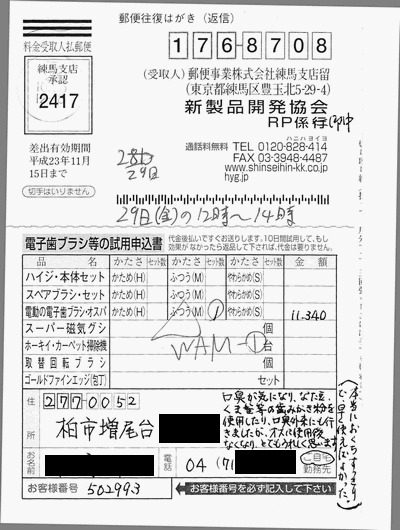 郵便往復はがき（返信）
料金受取人払郵便
練馬支店
承認
2417
差出有効期間
平成23年11月
15日まで
切手はいりません
1768708
（受取人）郵便事業株式会社練馬支店留
（東京都練馬区豊玉北5-29-4）
新製品開発協会
RP係行
ハニハヨイヨ
通話料無料 TEL 0120-828-414
FAX 03-3948-4487
www.shinseihin-kk.co.jp
hyg.jp
29日
29日(金)の12時〜14時
電子歯ブラシ等の試用申込書
代金後払いですぐお送りします。10日間試用して、もし
効果がなかったら返送して下されば、代金は要りません。
品名 かたさ セット数 かたさ セット数 かたさ セット数 金額
ハイジ・本体セット かため(H) ふつう(M) やわらかめ(S)
スペアブラシ・セット かため(H) ふつう(M) やわらかめ(S)
電動の電子歯ブラシ・オスパ かため(H) ふつう(M) 1 やわらかめ(S) 11.340
スーパー磁気グシ 個
ホーキイ・カーペット掃除機 WAM-1 台
取替回転ブラシ 個
ゴールドファインエッジ(包丁) セット
住所
2770052
柏市増尾台
お名前
電話 04 (71
ご自宅
勤務先
お客様番号 502993
お客様番号を必ず記入して下さい
口臭が気になり、なた豆、
くま笹等の歯みがき粉を
使用したり、口臭外来にも行
きましたが、オスパ使用後
なくなり、とてもうれしく思います
(本当におくちすっきり
で早く使えばよかった)